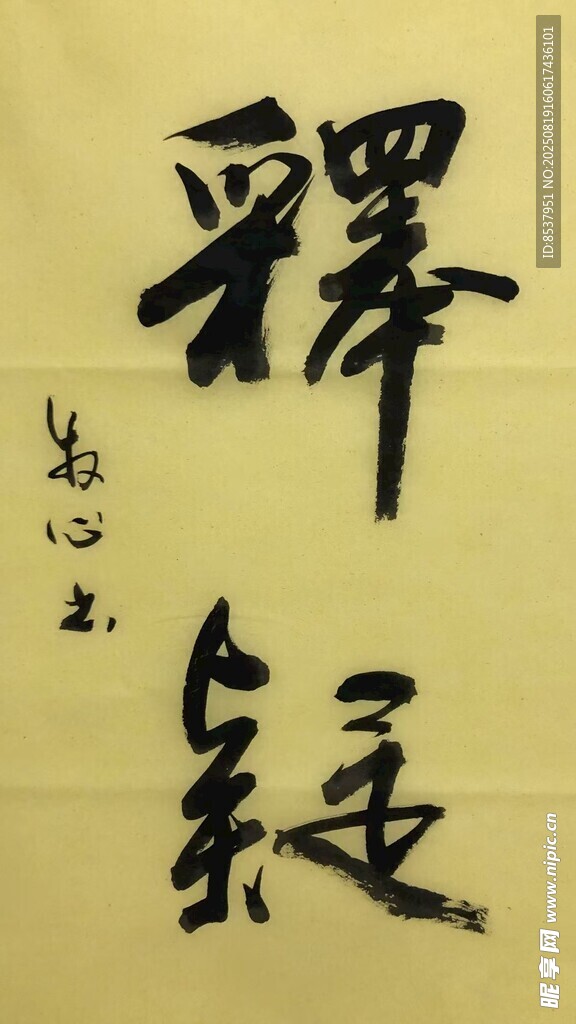 釋疑
牧心书
ID:8537951 NO:20250819160617436101
昵享网 www.nipic.cn